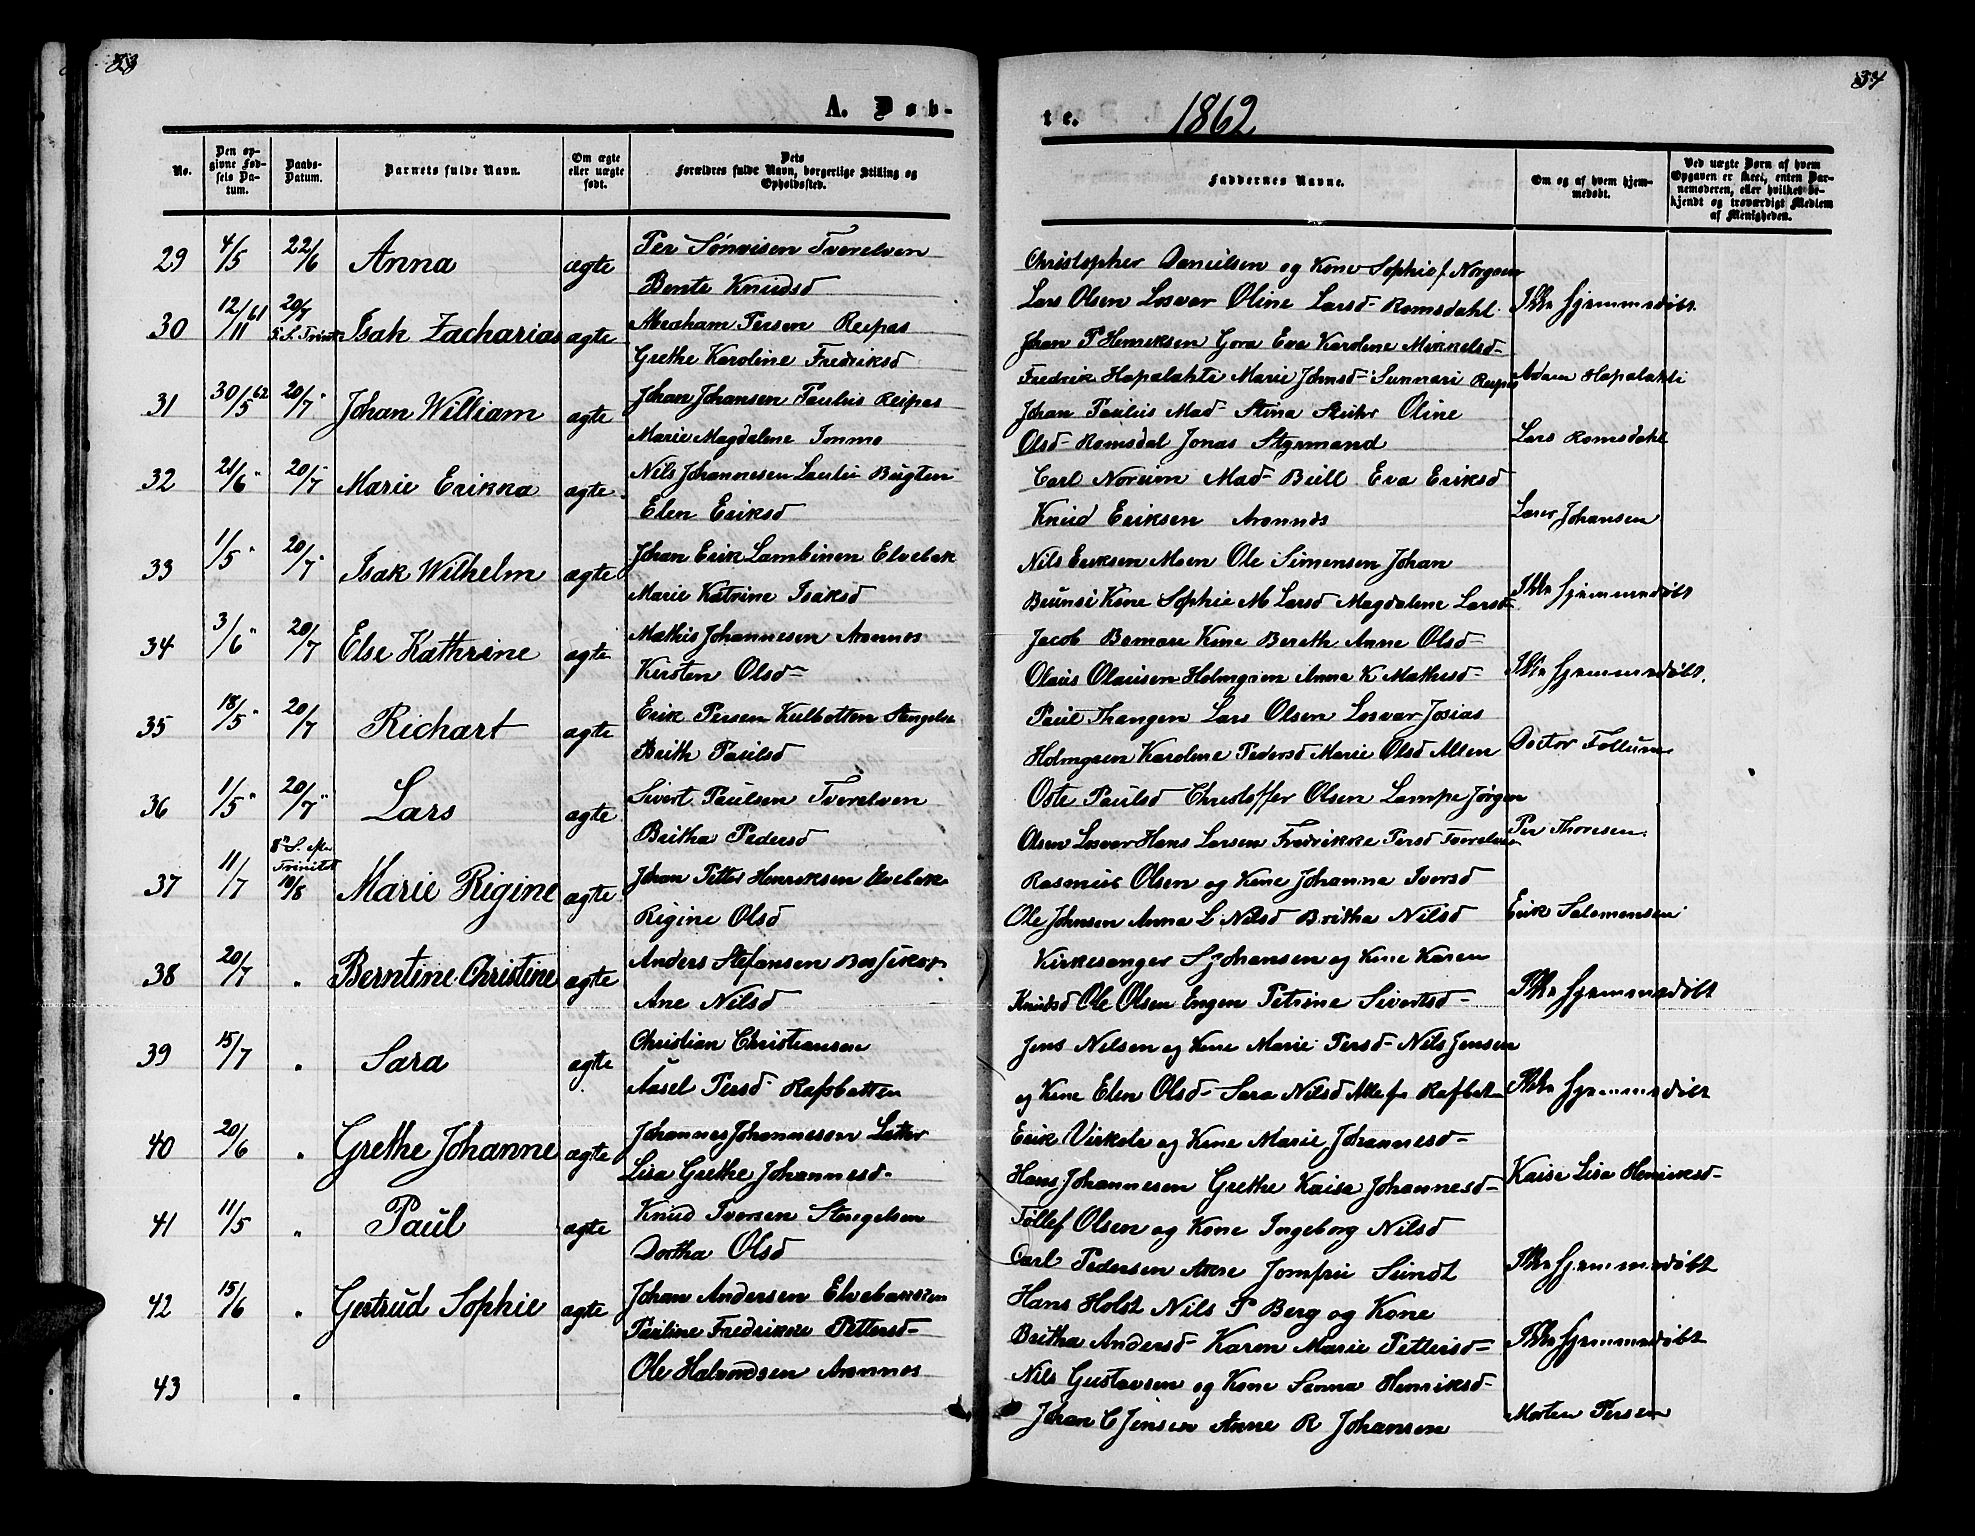 33
34
A. Døb-
te.
1862
No.
Den opgivne Fødsels Datum.
Daabs-Datum.
Barnets fulde Navn.
Om ægte eller uægte født.
Dets Forældres fulde Navn, borgerlige Stilling og Opholdssted.
Faddernes Navne.
Om og af hvem hjemmedøbt.
Ved uægte Børn af hvem Opgaven er skeet, enten Barnemoderen, eller hvilket bekjendt og troværdigt Medlem af Menigheden.
29 4/5 22/6 Anna ægte Per Tverelven
Bente Knudsd
Christopher Danielsen og Kone Sophie
Lars Olsen Losvar Oline Larsd Romsdahl Ikke hjemmedøbt
30 12/11 61 20/7 5 S. Trinit Isak Zacharias ægte Abraham Persen Reipas
Grethe Karoline Fredriksd
Johan P Henriksen Eva Karoline Mikkelsd
Fredrik Hapalahti Marie Johnsd Reipas Adam Hapalahti
31 30/5 62 20/7 Johan William ægte Johan Johansen Paulus Reipas
Marie Magdalene
Johan Paulus Mad Stina Oline
Olsd Romsdal Jonas Styrmand Lars Romsdahl
32 21/6 20/7 Marie Erikka ægte Nils Johannesen Bugten
Elen Eriksd
Carl Norum Mad Bull Eva Eriksd
Knud Eriksen Aronnes Johansen
33 1/5 20/7 Isak Wilhelm ægte Johan Erik Lambinen Elvebak
Marie Katrine Isaksd
Nils Eriksen Moen Ole Simensen Johan
Kone Sophie M Larsd Magdalene Larsd Ikke hjemmedøbt
34 3/6 20/7 Else Kathrine ægte Mathis Johannesen Aronnes
Kirsten Olsd
Jacob Kone Bereth Anne Olsd
Olaus Olausen Holmgren Anna K Mathisd Ikke hjemmedøbt.
35 18/5 20/7 Richart ægte Erik Persen
Brith Paulsd
Paul Thangen Lars Olsen Losvar Josias
Holmgren Karoline Pedersd Marie Olsd Doctor Follum
36 1/5 20/7 Lars ægte Sivert Paulsen Tverelven
Britha Pedersd
Paulsd Christoffer Olsen Lampe Jørgen
Olsen Losvar Hans Larsen Fredrikke Persd Tverelven Per Thoresen
37 11/7 8de S. efter Trinitat 10/8 Marie Rigine ægte Johan Petter Henriksen Elvebak
Rigine Olsd
Rasmus Olsen og Kone Johanna Iversd
Ole Johnsen Anna L Nilsd Britha Nilsd Erik Salomonsen
38 20/7 " Berntine Christine ægte Anders Stefansen Bossekop
Ane Nilsd
Kirkesanger S Johansen og Kone Karen
Knudsd Ole Olsen Engen Petrine Sivertsd Ikke hjemmedøbt
39 15/7 " Sara ægte Christian Christiansen
Aasel Persd Rafsbotten
Jens Nilsen og Kone Marie Persd Nils Jensen
og Kone Elen Olsd Sara Nilsd Alle fr Rafsbot Ikke hjemmedøbt
40 20/6 " Grethe Johanne ægte Johannes Johannesen
Lisa Grethe Johannesd
Erik og Kone Marie Johannesd
Hans Johannesen Grethe Kaisa Johannesd Kaisa Lisa Henriksd
41 11/5 " Paul ægte Knud Iversen Stengelsen
Dortha Olsd
Tollef Olsen og Kone Ingeborg Nilsd
Carl Pedersen Jomfru Sundt Ikke hjemmedøbt
42 15/6 " Gertrud Sophie ægte Johan Andersen Elvebakken
Pauline Fredrikke Pettersd
Hans Holst Nils P Berg og Kone
Britha Andersd Karen Marie Pettersd Ikke hjemmedøbt
43 " Ole Halvorsen Aronnes
Nils Gustavsen og Kone Senna Henriksd
Johan C Jensen Anne R Johansen Morten Persen